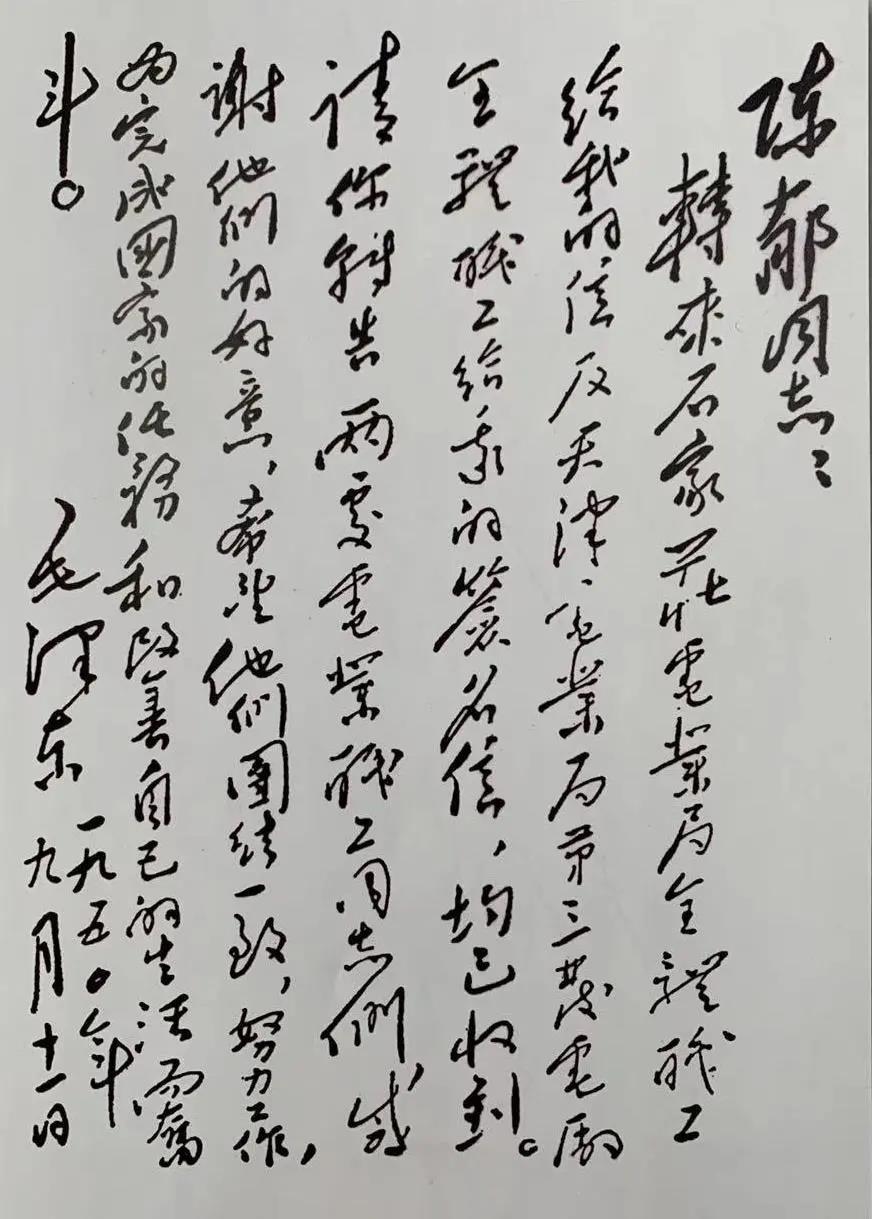 陈郁同志：
轉來石家莊電業局全體職工
給我的信及天津電業局第三發電廠
全體職工給我的簽名信，均已收到。
請你轉告兩處電業職工同志們，感
謝他們的好意，希望他們團結一致，努力工作，
為完成國家的任務和改善自己的生活而奮
斗。
毛澤东
一九五〇年
九月十一日